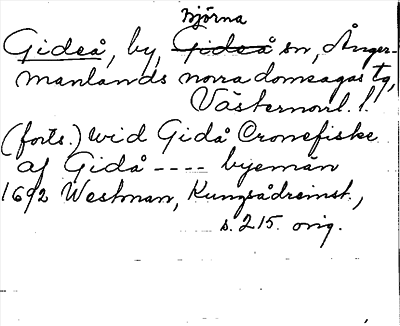 Björna
Gideå, by, Gideå sn, Ånger-
manlands norra domsagas tg,
Västernorrl. l.
(forts.) wid Gidå Cronefiske
af Gidå ---- byemän
1692 Westman, Kungsådreinst.,
s. 215. orig.